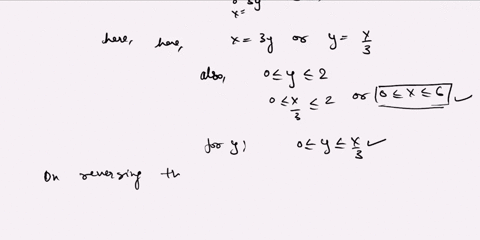 0 3y
x=
here, here, x = 3y or y = x/3
also, 0 ≤ y ≤ 2
0 ≤ x/3 ≤ 2 or 0 ≤ x ≤ 6 ✓
for y; 0 ≤ y ≤ x/3 ✓
On reversing th